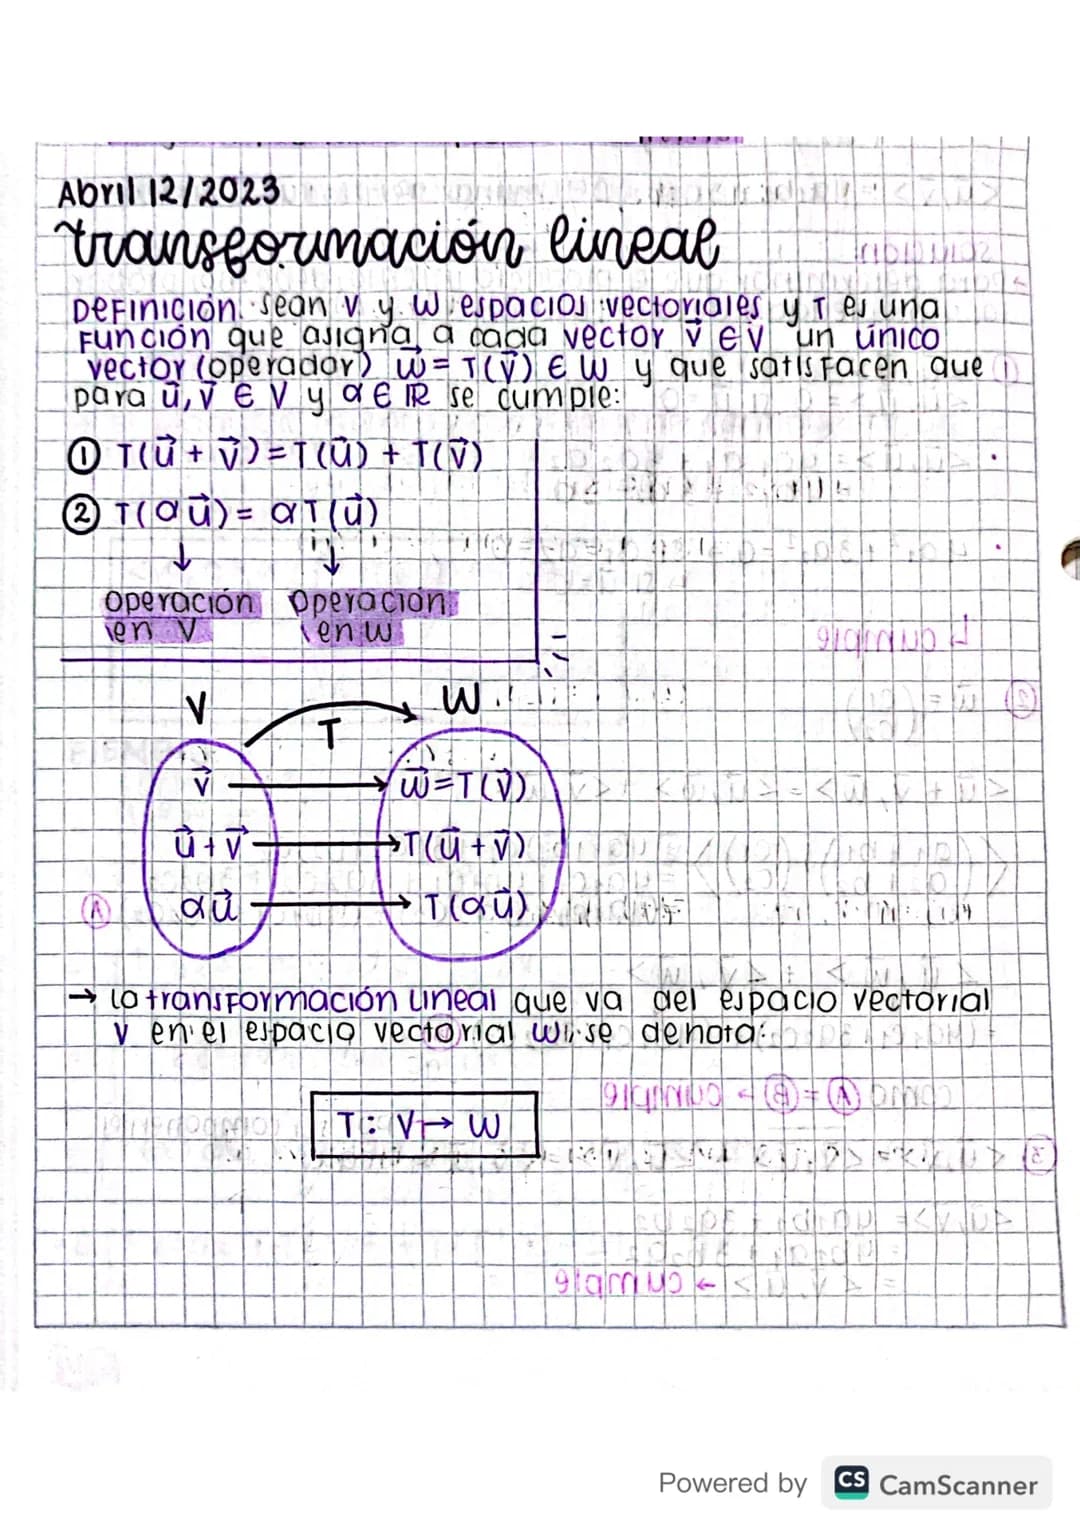 Abril 12/2023
transformación lineal
Definición. Sean V y W espacios vectoriales y T es una
función que asigna a cada vector v⃗ ∈ V un único
vector (operador) w⃗ = T(v⃗) ∈ W y que satisfacen que
para u⃗, v⃗ ∈ V y α ∈ IR se cumple:
① T(u⃗ + v⃗) = T(u⃗) + T(v⃗)
② T(αu⃗) = αT(u⃗)
↓ ↓
operación operación
en V en W
V T W
v⃗ → w⃗ = T(v⃗)
u⃗ + v⃗ → T(u⃗ + v⃗)
αu⃗ → T(αu⃗)
→ La transformación lineal que va del espacio vectorial
V en el espacio vectorial W se denota:
T: V ↦ W
Powered by CS CamScanner